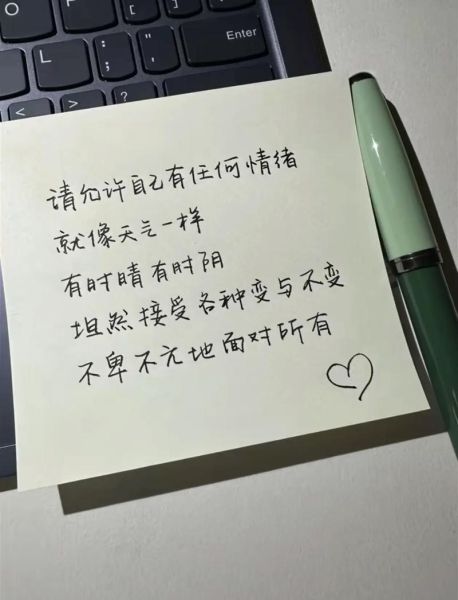 O P
L : ; " ' Enter
< , > . ? /
请允许自己有任何情绪
就像天气一样
有时晴有时阴
坦然接受各种变与不变
不卑不亢地面对所有